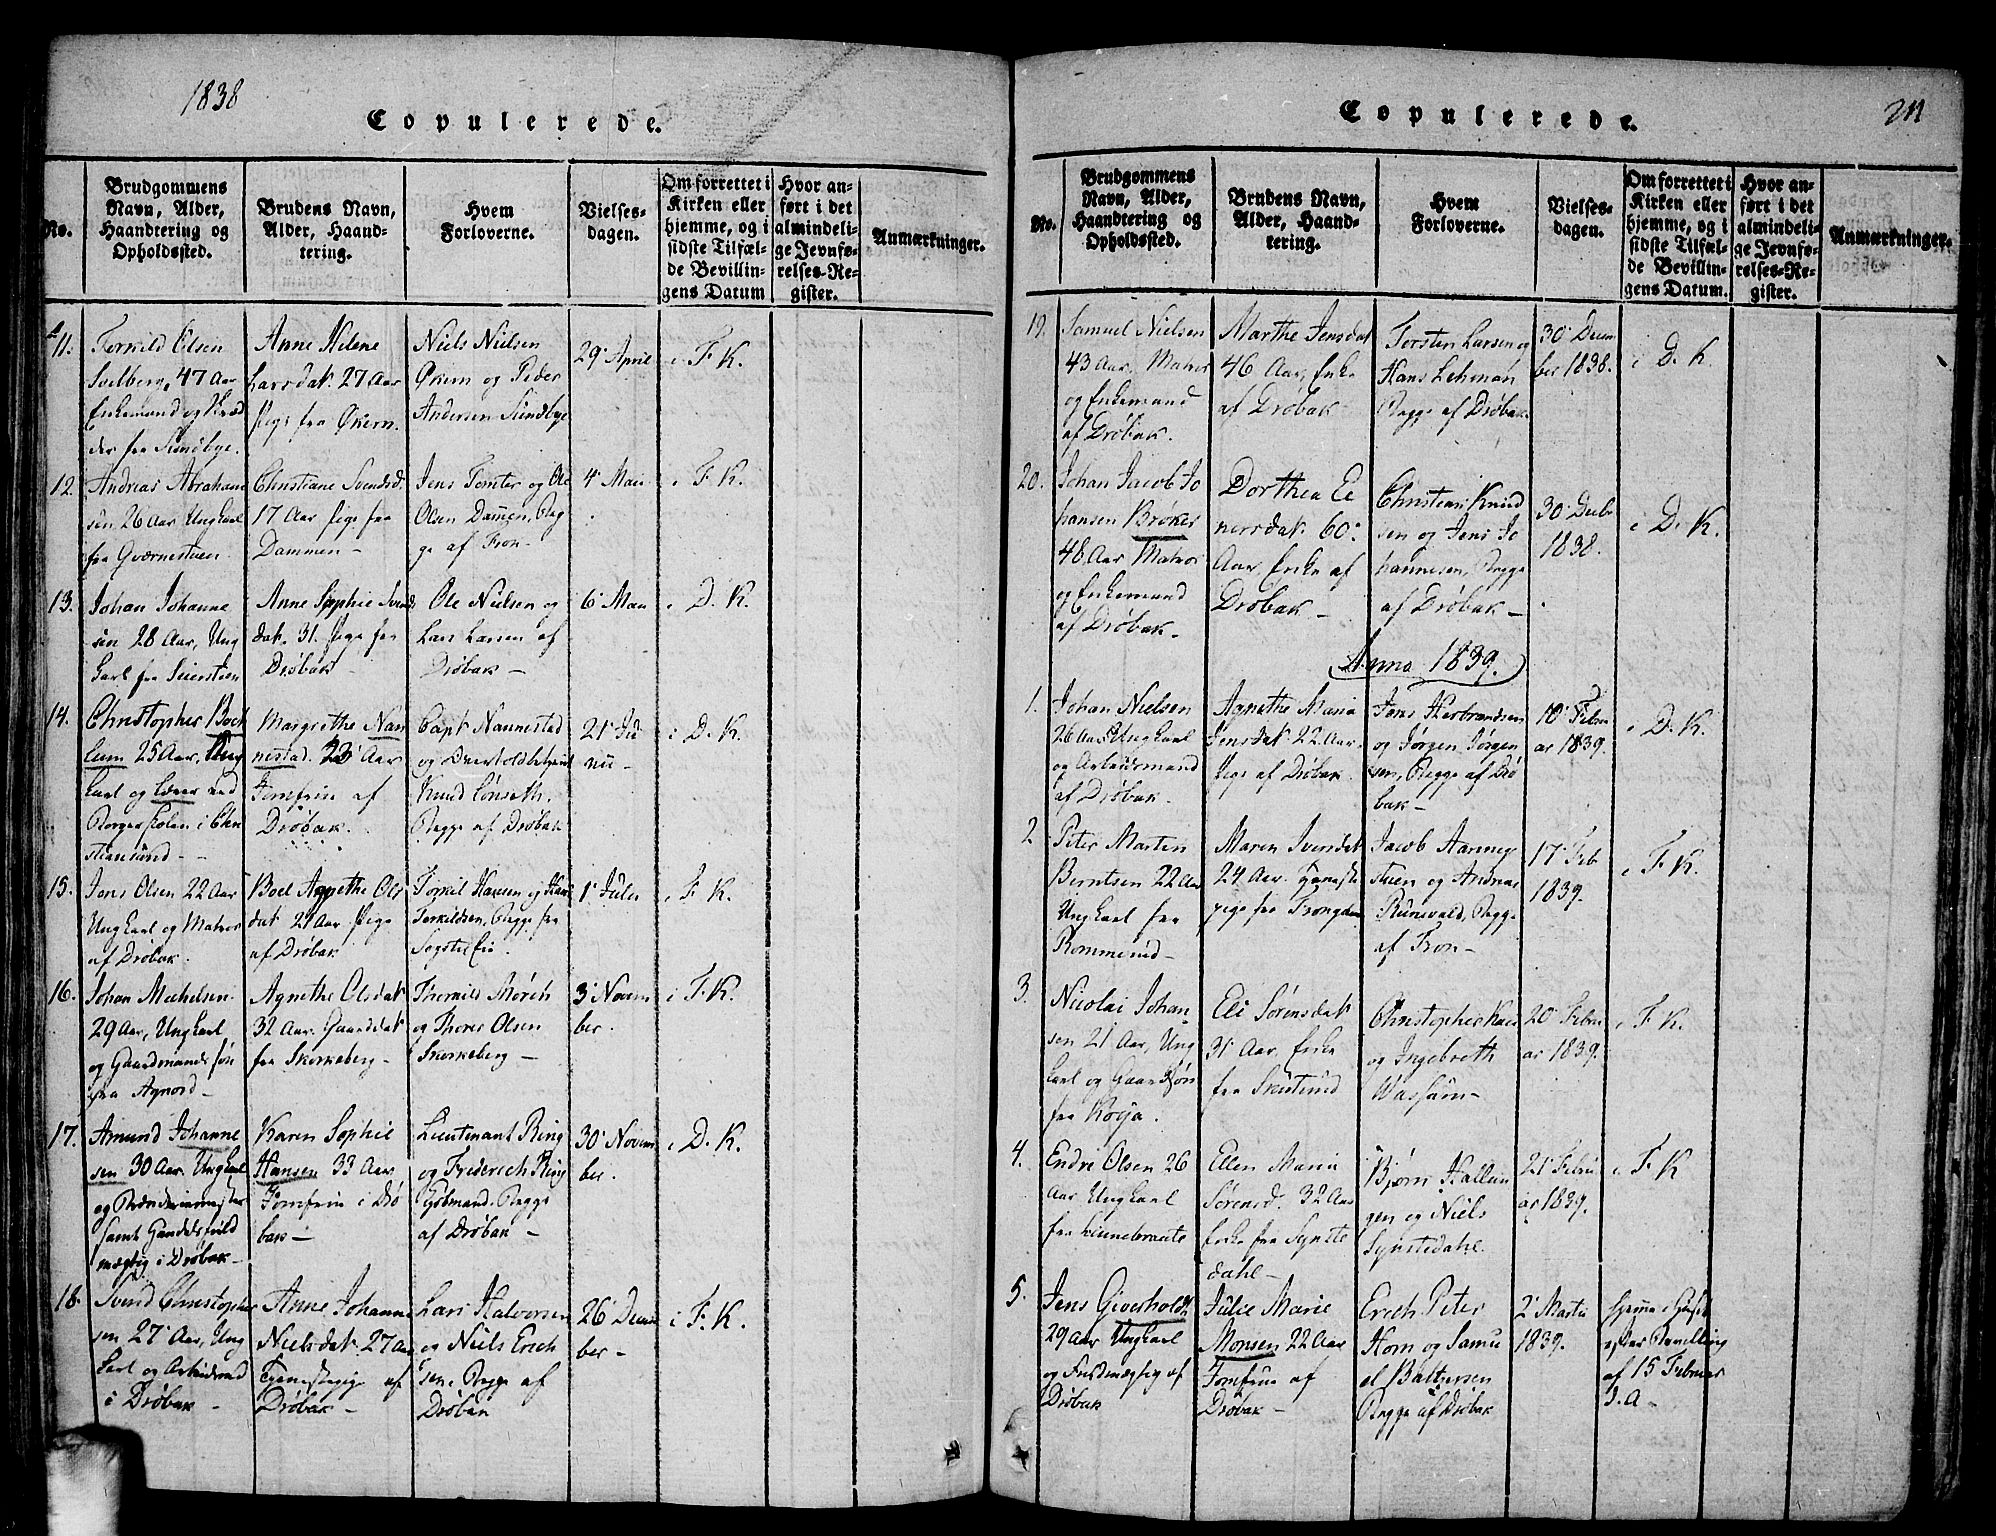 1838
Copulerede.
No.
Brudgommens
Navn, Alder,
Haandtering og
Opholdssted.
Brudens Navn,
Alder, Haand-
tering.
Hvem
Forloverne.
Vielses-
dagen.
Om forrettet i
Kirken eller
hjemme, og i
sidste Tilfæl-
de Bevillin-
gens Datum
Hvor an-
ført i det
almindeli-
ge Jevnfø-
relses-Re-
gister.
Anmærkninger.
11.
Torkild Olsen
47 Aar
Enkemand og
der fra Sundbye.
Anne Helene
Larsdat. 27 Aar
Pige fra Økern.
Niels Nielsen
Økern og Peder
Andersen Sundbye
29 April
i F. K.
12.
Andreas Abraham
sen 26 Aar Ungkarl
fra
Christiane Svendsd.
17 Aar Pige fra
Dammen -
Jens Tomter og Ole
Olsen Dammen, Beg
ge af Fron -
4 Mai
i F. K.
13.
Johan Johanne
sen 28 Aar, Ung
karl fra
Anne Sophie Svends
dat. 31. Pige fra
Drøbak
Ole Nielsen og
Lars Larsen af
Drøbak -
6 Mai
i D. K.
14.
Christopher Boch
lum 25 Aar, Ung
karl og Lærer ved
Borgerskolen i Chri
stiansund -
Margrethe Nan
nestad. 23 Aar
Jomfrue af
Drøbak.
Capt Nannestad
og
Knud Lønseth.
Begge af Drøbak
21 Ju
nii -
i D. K.
15.
Jens Olsen 22 Aar
Ungkarl og Matros
af Drøbak.
Boel Agnethe Ols
dat 21 Aar Pige
af Drøbak
Torkil Hansen og Hans
Torkildsen, Begge fra
1 Julii
i F. K.
16.
Johan Michelsen
29 Aar, Ungkarl
og Gaardmands søn
fra Agnord -
Agnethe Olsdat
32 Aar. Gaarddat
fra Skorkeberg -
Thorkild Mørch
og Thores Olsen
Skorkeberg -
3 Novem
ber.
i F. K.
17.
Amund Johanne
sen 30 Aar. Ungkarl
og
samt Handelsfuld
mægtig i Drøbak -
Karen Sophie
Hansen 33 Aar
Jomfrue i Drø
bak -
Lieutenant Ring
og Friderich Ring
Begge
af Drøbak -
30 Novem
ber.
i D. K.
18.
Svend Christopher
sen 27 Aar, Ung
karl og Arbeidsmd
i Drøbak -
Anne Johanne
Nielsdat. 27 Aar
Tjenestepige af
Drøbak -
Lars Halvorsen
og Niels Erich
sen, Begge af
Drøbak
26 Decem
ber -
i F. K.
Copulerede.
211
No.
Brudgommens
Navn, Alder,
Haandtering og
Opholdssted.
Brudens Navn,
Alder, Haand-
tering.
Hvem
Forloverne.
Vielses-
dagen.
Om forrettet i
Kirken eller
hjemme, og i
sidste Tilfæl-
de Bevillin-
gens Datum.
Hvor an-
ført i det
almindeli-
ge Jevnfø-
relses-Re-
gister.
Anmærkninger.
19.
Samuel Nielsen
43 Aar, Matros
og Enkemand
af Drøbak.
Marthe Jensdat
46 Aar, Enke
af Drøbak -
Torsten Larsen og
Hans Lehman
Begge af Drøbak
30 Decem
ber 1838.
i D. K.
20.
Johan Jacob Jo
hansen Brøker
48 Aar Matros
og Enkemand
af Drøbak -
Dorthea Ei
nersdat. 60
Aar, Enke af
Drøbak -
Christian Knud
sen og Jens Jo
hannesen, Begge
af Drøbak -
30 Decbr
1838.
i D. K.
Anno 1839.
1.
Johan Nielsen
26 Aar Ungkarl
og Arbeidsmand
af Drøbak.
Agnethe Maria
Jensdat. 22 Aar.
Pige af Drøbak.
Jens Herbrandsen
og Jørgen Jørgen
sen, Begge af Drø
bak -
10 Febru
ar 1839.
i D. K.
2
Peter Marten
Berntsen 22 Aar
Ungkarl fra
Rommerud -
Maren Iversdat
24 Aar. Tjeneste
pige fra
Jacob Aarnng
Tuen og Andreas
Runsvald, Begge
af Fron -
17 Feb
1839.
i F. K.
3.
Nicolai Johan
sen 21 Aar, Ung
karl og Gaardsøn
fra Korja.
Eli Sørensdat
31 Aar, Enke
fra Skuterud
Christopher Kaas
og Ingebreth
Wassum -
20 Febru
ar 1839.
i F. K.
4.
Endre Olsen 26
Aar Ungkarl
fra Linnebraate
Ellen Maria
Sørensd. 32 Aar
Enke fra Synste
dahl -
Bjørn Hallan
gen og Niels
Synstedahl.
21 Febru
ar 1839.
i F. K
5.
Jens Giverholdt
29 Aar Ungkarl
og Fuldmægtig af
Drøbak
Julie Marie
Monsen 22 Aar
Jomfrue af
Drøbak -
Erich Peter
Horn og Samu
el Baltzersen
Begge af Drøbak
2 Martii
1839.
hjemme i Huset
efter Bevilling
af 15 Februar
d. A -